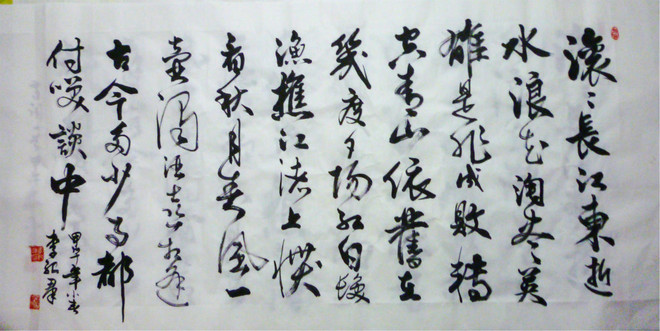 滾〻長江東逝
水浪花淘尽英
雄是非成敗轉
空青山依舊在
幾度夕陽紅白髮
漁樵江渚上慣
看秋月春風一
壺濁酒喜相逢
古今多少事都
付咲談中
甲午年
李